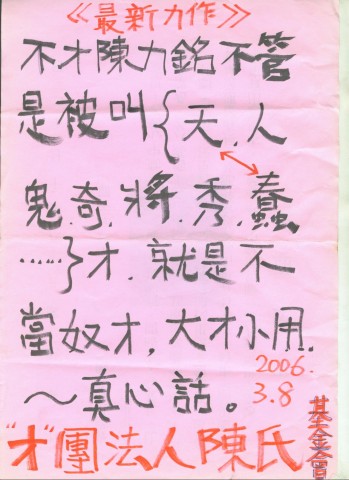 ≪最新力作≫
不才陳力銘不管
是被叫{天.人
鬼.奇.將.秀.蠢
……}才.就是不
當奴才,大才小用.
～真心話。
2006.
3.8
"才"團法人陳氏
基金會